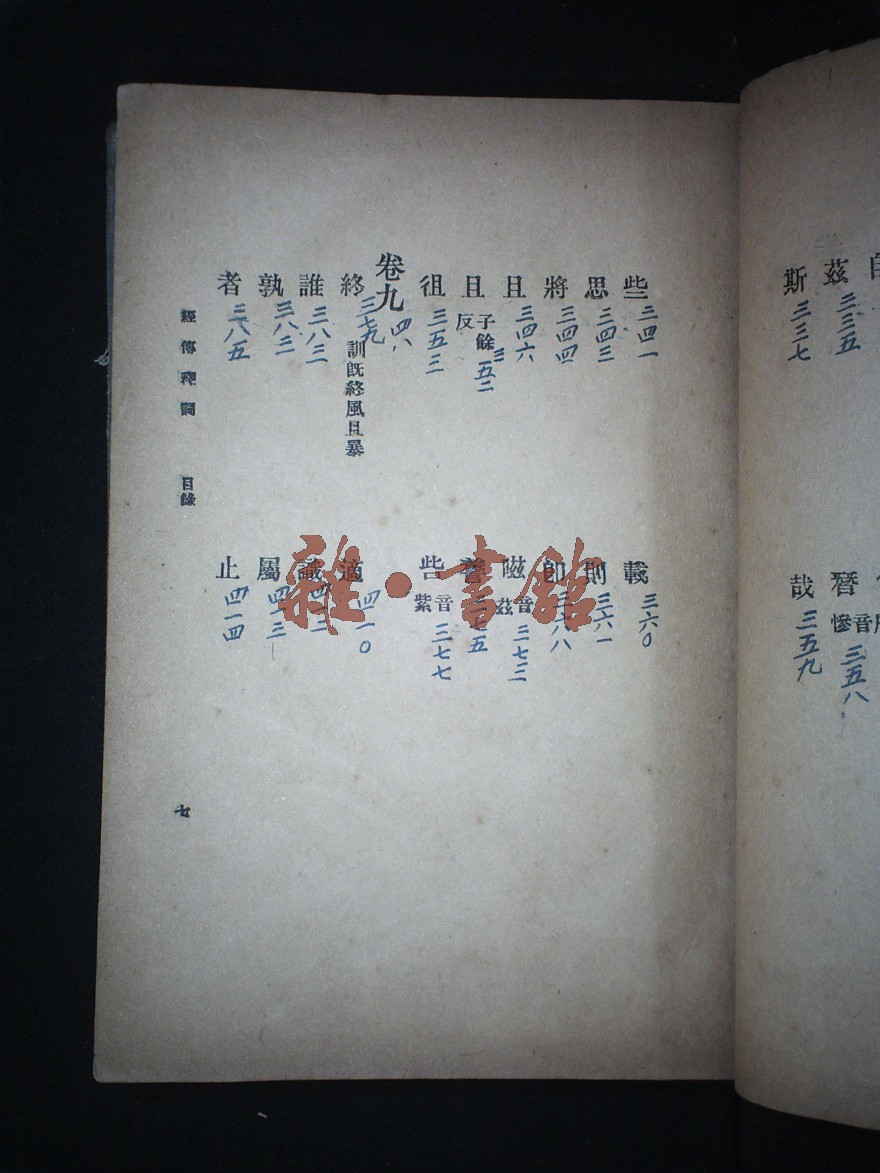 茲 三三五
斯 三三七
朁 音慘 三五八
哉 三五九
些 三四一
思 三四三
將 三四四
且 三四六
且 子餘反 三五二
徂 三五三
載 三六〇
則 三六一
即 三六八
嗞 音茲 三七三
三七五
呰 音紫 三七七
卷九 四八
終 三七九 訓既終風且暴
誰 三八三
孰 三八三
者 三八五
適 四一〇
識 四一三
屬 四一三
止 四一四
經傳釋詞 目錄
七
雜·書館